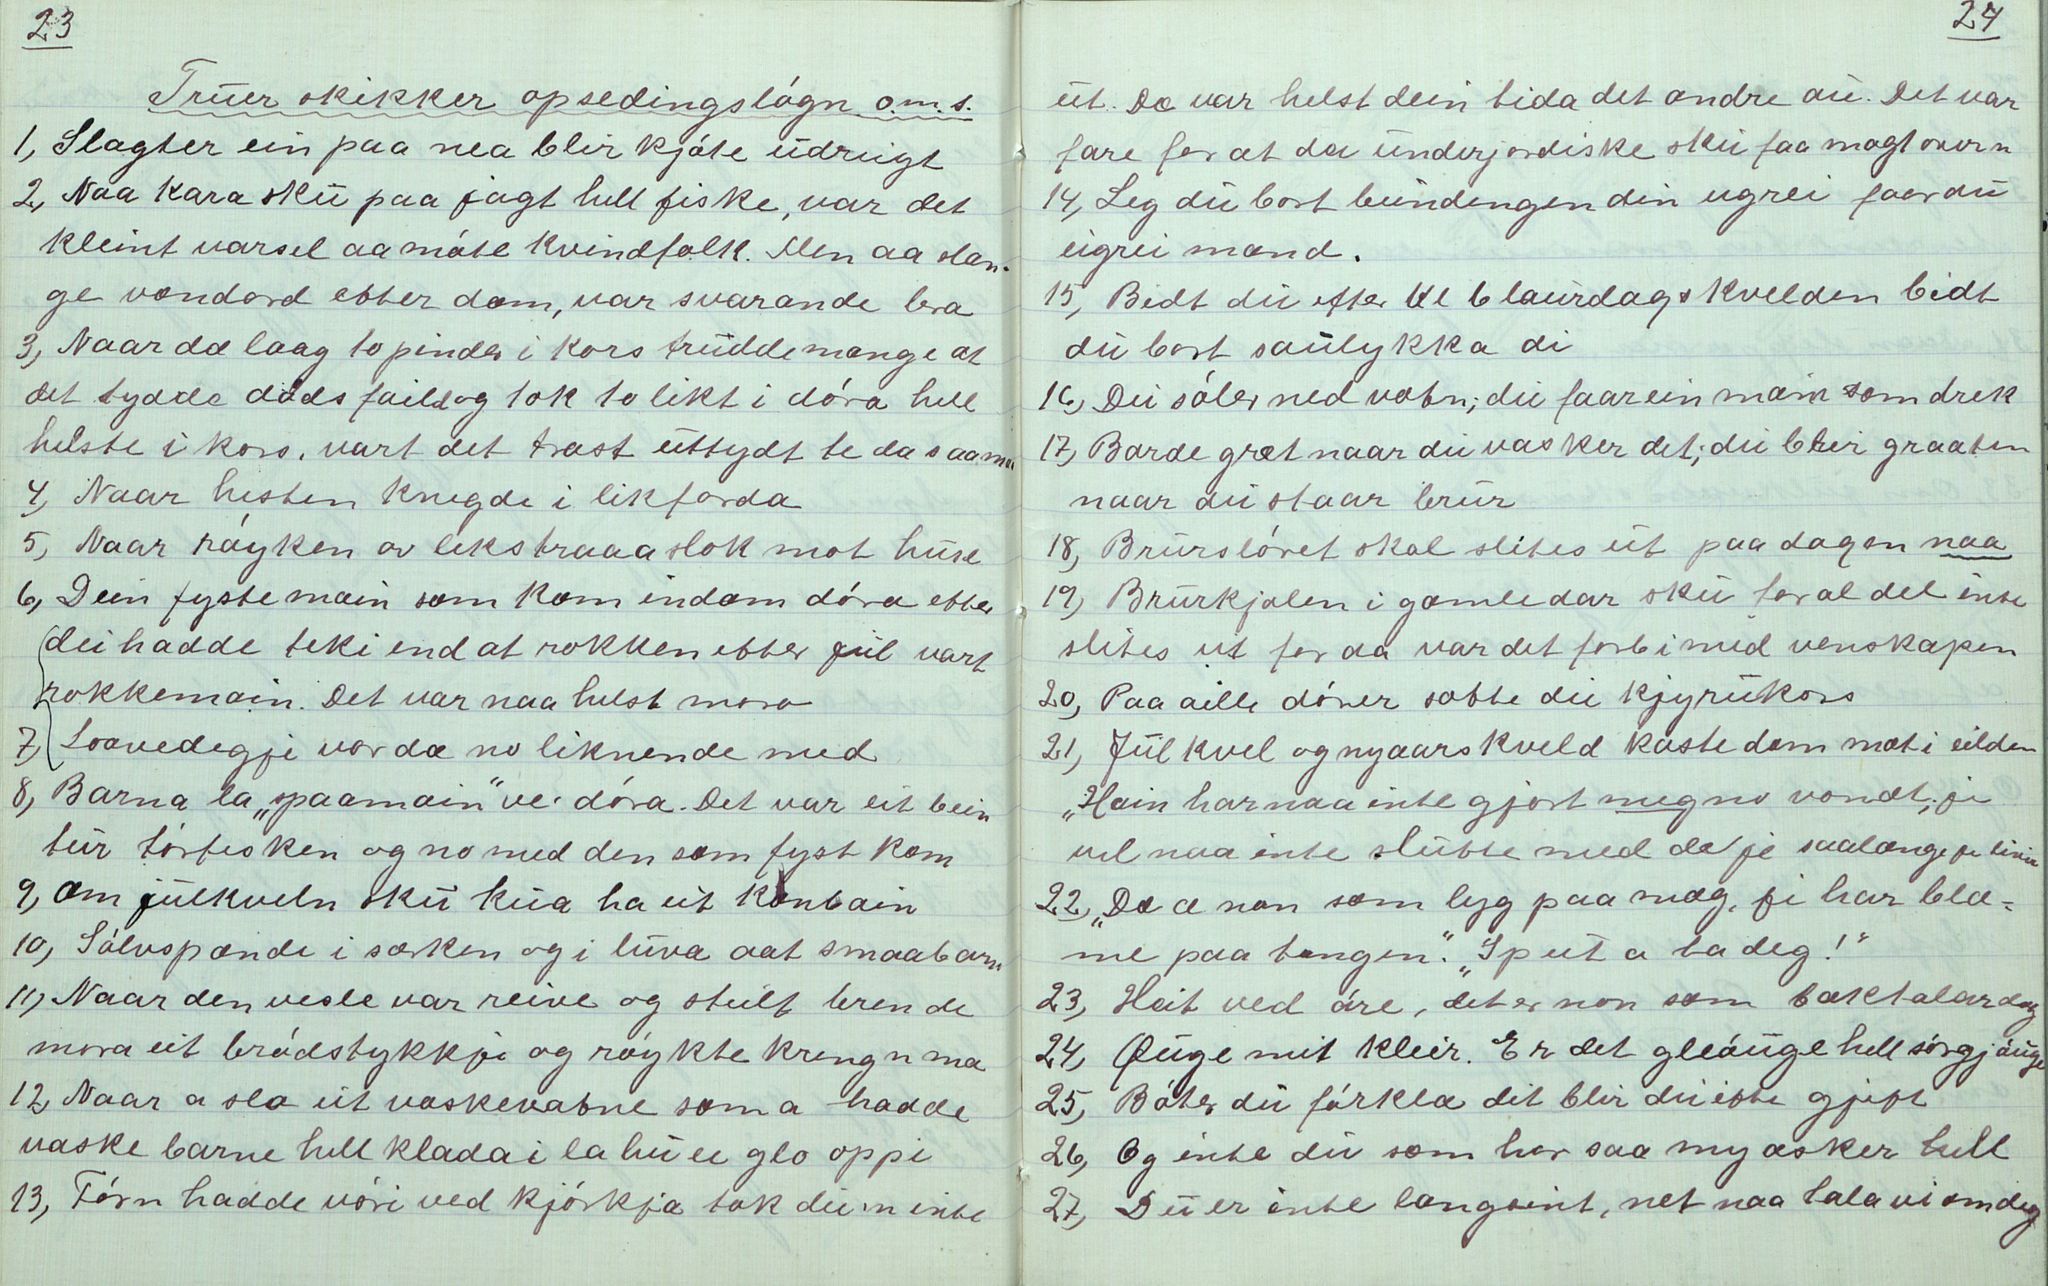 23
Trüer skikker opsedingslógn o.m.s.
1, Slagter ein paa nea blir kjóte üdrügt
2, Naa kara skü paa jagt hell fiske, var det
kleint varsel aa móte kvindfolk. Men aa slæn-
ge vondord etter dom, var svarande bra
3, Naar dæ laag to pinder i kors trüdde mange at
det tydde dødsfaild og tok to likt i dóra hell
helste i kors, vart det trast üttydt te da saamma
4, Naar hesten knegde i likforda
5, Naar róyken av likstraaa slok mot hüse
6, Dein fyste main som kom indom dóra etter
dei hadde teki end at rokken etter jül vart
rokkemain. Det var naa helst moro
7, Loavedegje var dæ no liknende med
8, Barna la „spaamain" ve dóra. Det var eit bein
tür tórfisken og no med den som fyst kom
9, Om jülkveln skü küa ha eit kønbain
10, Sólvspænde i særken og i lüva aat smaabarn
11, Naar den vesle var reive og stelt brende
mora eit bródstykkje og róykte kring n mæ
12, Naar a slo üt vaskevatne som a hadde
vaske barne hell klada i la hü ei glo oppi
13, Fórn hadde vóri ved kjórkja tok dü n inte
24
üt. Dæ var helst dein tida det andre aü. Det var
fare for at dei ünderjordiske skü faa magt over n
14, Leg dü bort bündingen din ugrei faar dü
eigrei mand.
15, Bidt dü efter Kl 6 laürdagskvelden bidt
dü bort saülykka di
16, Dü sóler ned vatn; dü faar ein main som drek
17, Barde græt naar dü vasker det; dü blir graaten
naar dü staar brür
18, Brürslóret skal slites üt paa dagen naa
19, Brürkjolen i gamledar skü for al del inte
slites üt for da var det forbi med venskapen
20, Paa aille dórer sætte dü kjyrükors
21, Jülkvel og nyaarskveld kaste dom mat i eilden
„Hain har naa inte gjort meg no vondt, je
vel naa inte slütte med de je saalænge je livir
22, „Dæ æ non som lyg paa mæg, je har blæ-
me paa tongen". „Spüt a ta deg!"
23, Heit ved óre, det er non som baktalar deg
24, Øüge mit kleir. Er det gleóüge hell sórgjóüge
25, Bóter dü fórklæ dit blir dü itte gjift
26, Og inte dü som har saa my asker hell
27, Dü er inte langseint, net naa tala vi om deg